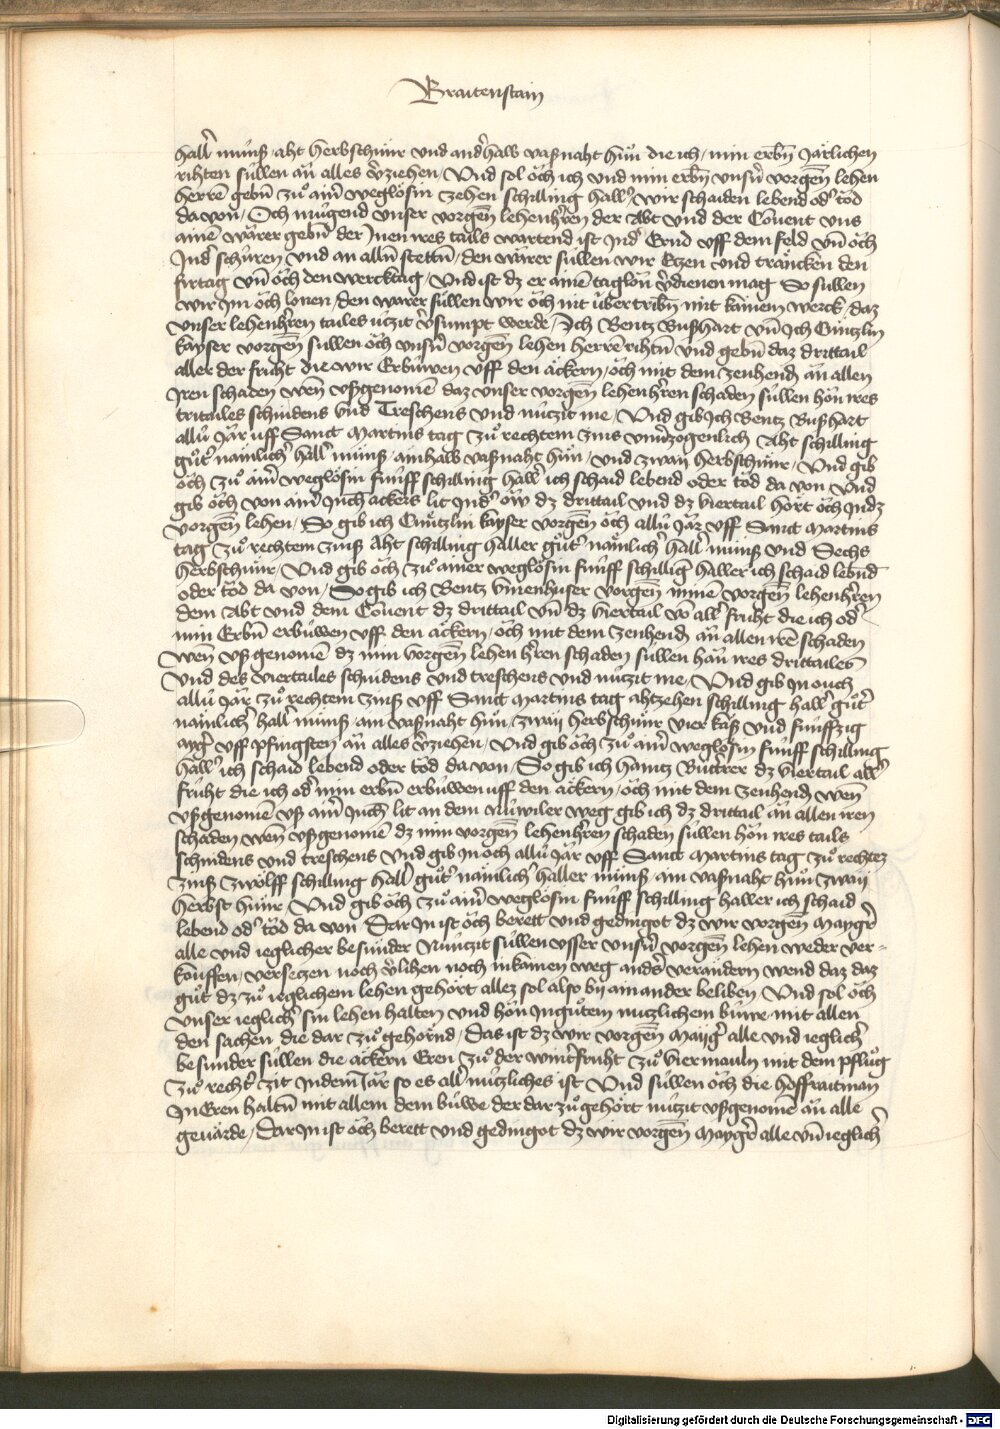 Braitenstain
hall münß aht herbsthünr und andhalb vaßnaht hůn die ich / min erbn Järlichen
rihten süllen än alles vziehen / Und sol öch ich und min erbn unsn vorgen lehen
herre gebn zů aim weglösin zehen schilling hall / wir schaiden lebend od töd
da von / Och mügend unser vorgen lehenhren der Abt und der Covent uns
ainē wärer gebn der Inen ires tails wartend ist Ind Ernd uff dem feld vn öch
Ind schüren und an alln stettn / den wärer süllen wir Etzen und tränken den
firtag vn öch den wercktag / Und ist dz er ainē taglön vdienen mag So süllen
wir Im öch lonen / den warer süllen wir öch nit übertribn mit kainem werck / daz
unser lehenhren tailes üczit vsumpt werde / Ich Bentz Bußhart vn Ich Cüntzlin
kayser vorgen süllen öch unsn vorgen lehen herre rihtn und gebn daz drittail
aller der fruht die wir Erbuwen uff den äckern / öch mit dem zenhend än allen
Iren schaden wen ußgenomē daz unser vorgen lehenhren schaden süllen hön ires
trittailes schnidens und Treschens und nüczit me / Und gib Ich Bentz Bußhart
allü Jär uff Sanct Martins tag zů rechtem zins unvzogenlich Aht schilling
gůt nämlich hall münß ainhalb vaßnaht hůn / und zwaij herbsthünr / Und gib
öch zů aim weglösin fünff schilling hall ich schaid lebend oder töd da von Und
gib öch von aim Juch ackers lit Ind öw dz drittail und dz viertail hört öch Indz
vorgen lehen / So gib ich Cüntzlin kayser vorgen öch allü Jär uff Sanct Martins
tag zů rechtem zinß Aht schilling haller gůt nämlich hall münß und Sechs
herbsthünr / Und gib öch zů ainer weglösin fünff schillig haller ich schaid lebnd
oder töd da von / So gib ich Bentz vorgen minen vorgen lehenhren
dem Abt und dem Covent dz drittail vn dz viertail vō all fruht die ich od
min Erbn erbuwen uff den äckern / öch mit dem zenhend än allen irē schaden
wen uß genomē dz min vorgen lehen hren schaden süllen hän ires drittailes
Und des viertailes schnidens und treschens und nüczit me / Und gib In ouch
allü Jär zů rechtem zinß uff Sanct Martins tag ahtzehen schilling hall gůt
nämlich hall münß ain vaßnaht hůn / zwaij herbsthünr vier käß und fünffzig
ayr uff pfingsten än alles vziehen / Und gib öch zů aim weglösin fünff schilling
hall ich schaid lebend oder töd da von / So gib ich Haintz dz viertail all
fruht die ich od min erbn erbuwen uff den äckern / öch mit dem zenhend wen
ußgenomē uß aim Juch lit an dem Nuwiler weg gib ich dz drittail än allen iren
schaden wen ußgenomē dz min vorgen lehenhren schaden süllen hön ires tails
schnidens und treschens Und gib In öch allü Jär uff Sanct Martins tag zů rechtez
zinß zwölff schilling hall gůt nämlich haller münß ain vaßnaht hůn zwaij
herbst hünr / Und gib öch zů aim weglösin fünff schilling haller ich schaid
lebend od töd da von Dar In ist öch berett und gedingot dz wir vorgen Mayer
alle und ieglicher besunder Nünczit süllen usser unsn vorgen lehen weder ver-
kouffen / versetzen noch vlihen noch inkainen weg ands verändern wend daz daz
gůt dz zů ieglichem lehen gehört allez sol also bij ainander beliben Und sol öch
unser ieglich sin lehen halten und hön Ingůtem nuczlichem buwe mit allen
den sachen die dar zů gehörnd / Das ist dz wir vorgen Mayer alle und ieglich
besunder süllen die äckern Eren zů der wintfruht zů viermauln mit dem pflůg
zů recht zit Indem Jär so es all nüczliches ist Und süllen öch die hoffraitinan
In Eren haltn mit allem dem buwe der dar zů gehört nüczit ußgenomē än alle
gevärde / Dar In ist öch berett und gedingot dz wir vorgen Mayer alle vn ieglich
Digitalisierung gefördert durch die Deutsche Forschungsgemeinschaft - DFG